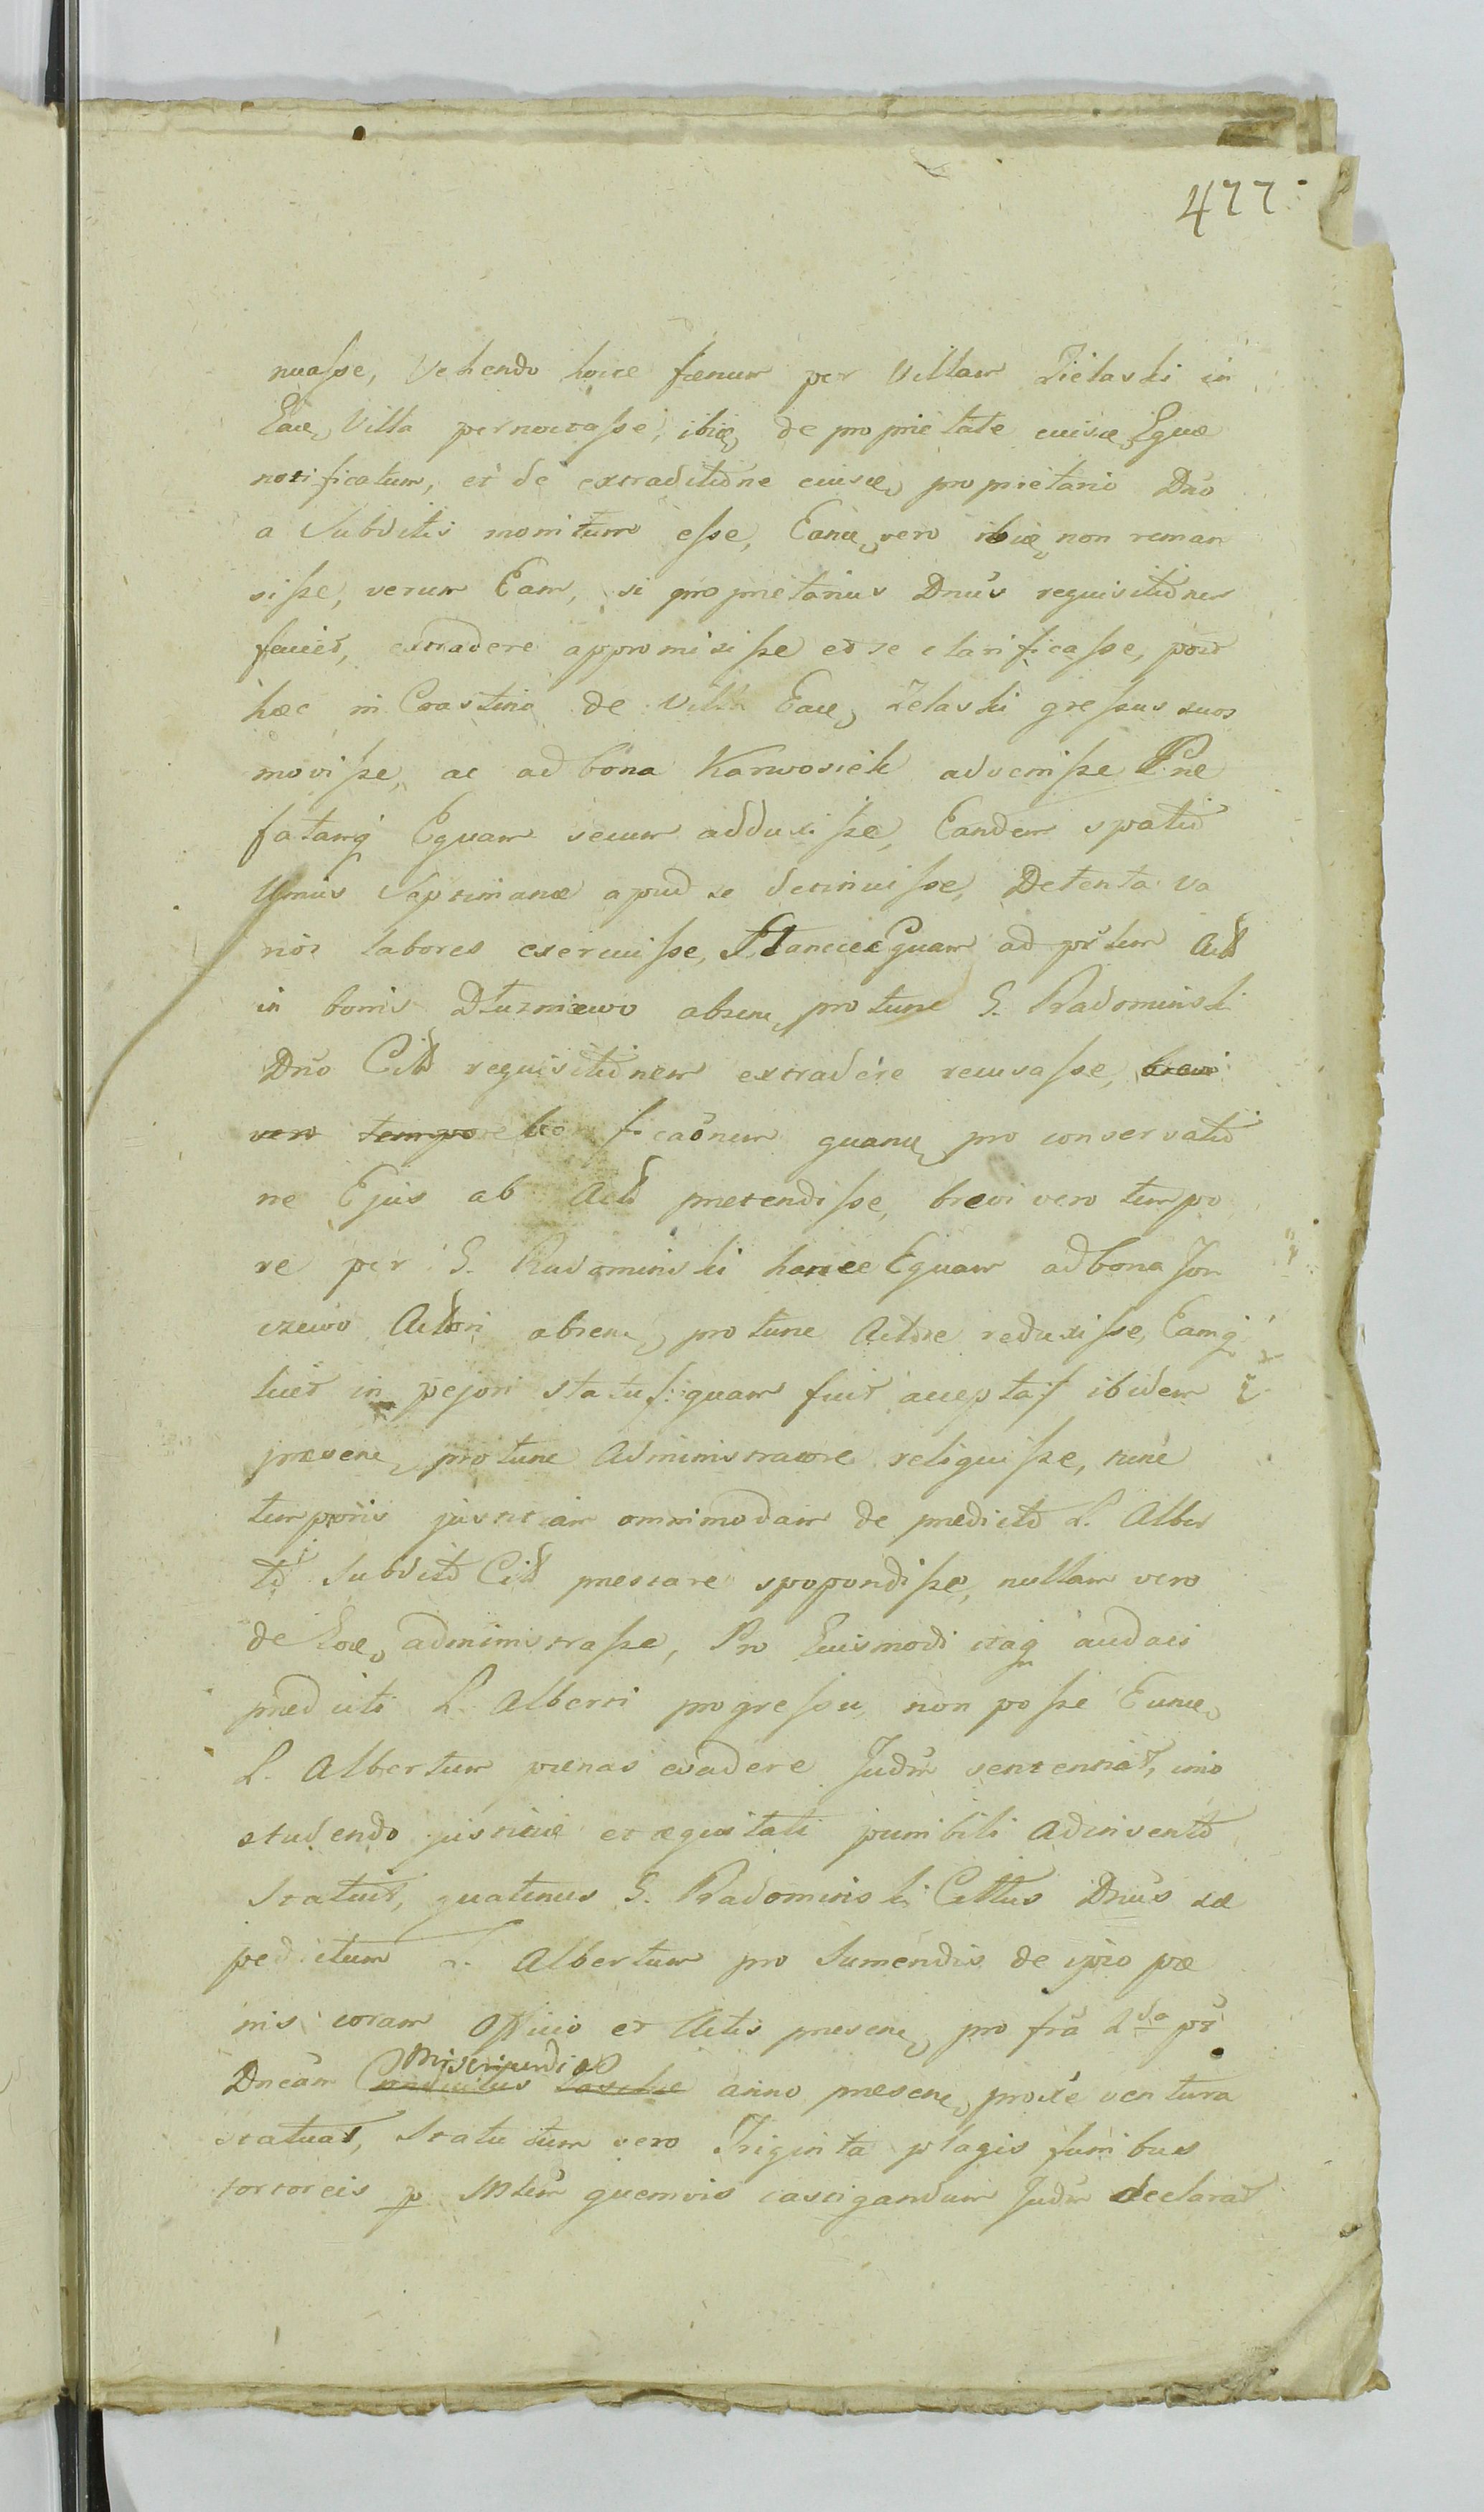 477
nuasse, Vehendo hocce faenum per Villam Zielaski in
Eace, Villa pernoctasse, ibiq, de proprietate cuisce, Equae
notificatum, et de extraditione cuisce, proprietario Dno
a Subditis monitum esse, Eance, vero ibiq, non reman
sisse, verum Eam, si proprietarius Dnus requisitionem
feciet, extradere appromisisse et se clarificasse, post
haec in Crastino de Villa Eace, Zelaski gressus suos
movisse, ac ad bona Karwosieki advenisse Prae
fatamq Equam secum adduxisse, Eandem spatio
Unius Septimanae apud se detinuisse, Detenta va
rios labores exercuisse, Hancce Equam ad
in bonis Dłużniewo absen, pro tunc G. Radominski
Dno Citto requisitionem extradere recusasse, brevi
vero tempore ficaonem quance, pro conservatio
ne Ejus ab Act praetendisse, brevi vero tempo
re per G. Radominski hancce Equam ad bona Jon
czewo Actori absen, pro tunc Actore reduxisse, Eamq
licet in pejori statu /: quam fuit accepta :/ ibidem
praesen, pro tunc Administratore reliquisse, tunc
temporis justitiam omnimodam de praedicto L. Alber
to Subdito Citt praestare spopondisse, nullam vero
de Eoce, administrasse, Pro Euismodi itaq audaci
praedicti L. Alberti progressu non posse Eunce,
L. Albertum paenas evadere Judm sententiat, imo
studendo justitiae et aequitati punibili adinventio
Statuit, quatenus G. Radominski Cittus Dnus sae
pedictum L. Albertum pro Sumendis de ipso pae
nis coram Officio et Actis praesen, pro fra 2da pt
Misericordiae
Dncam Conductus Paschae anno praesen, proxe ventura
statuat, Statutum vero Triginta plagis funibus
tortoreis p Mltrm quemvis castigandum Judm declarat